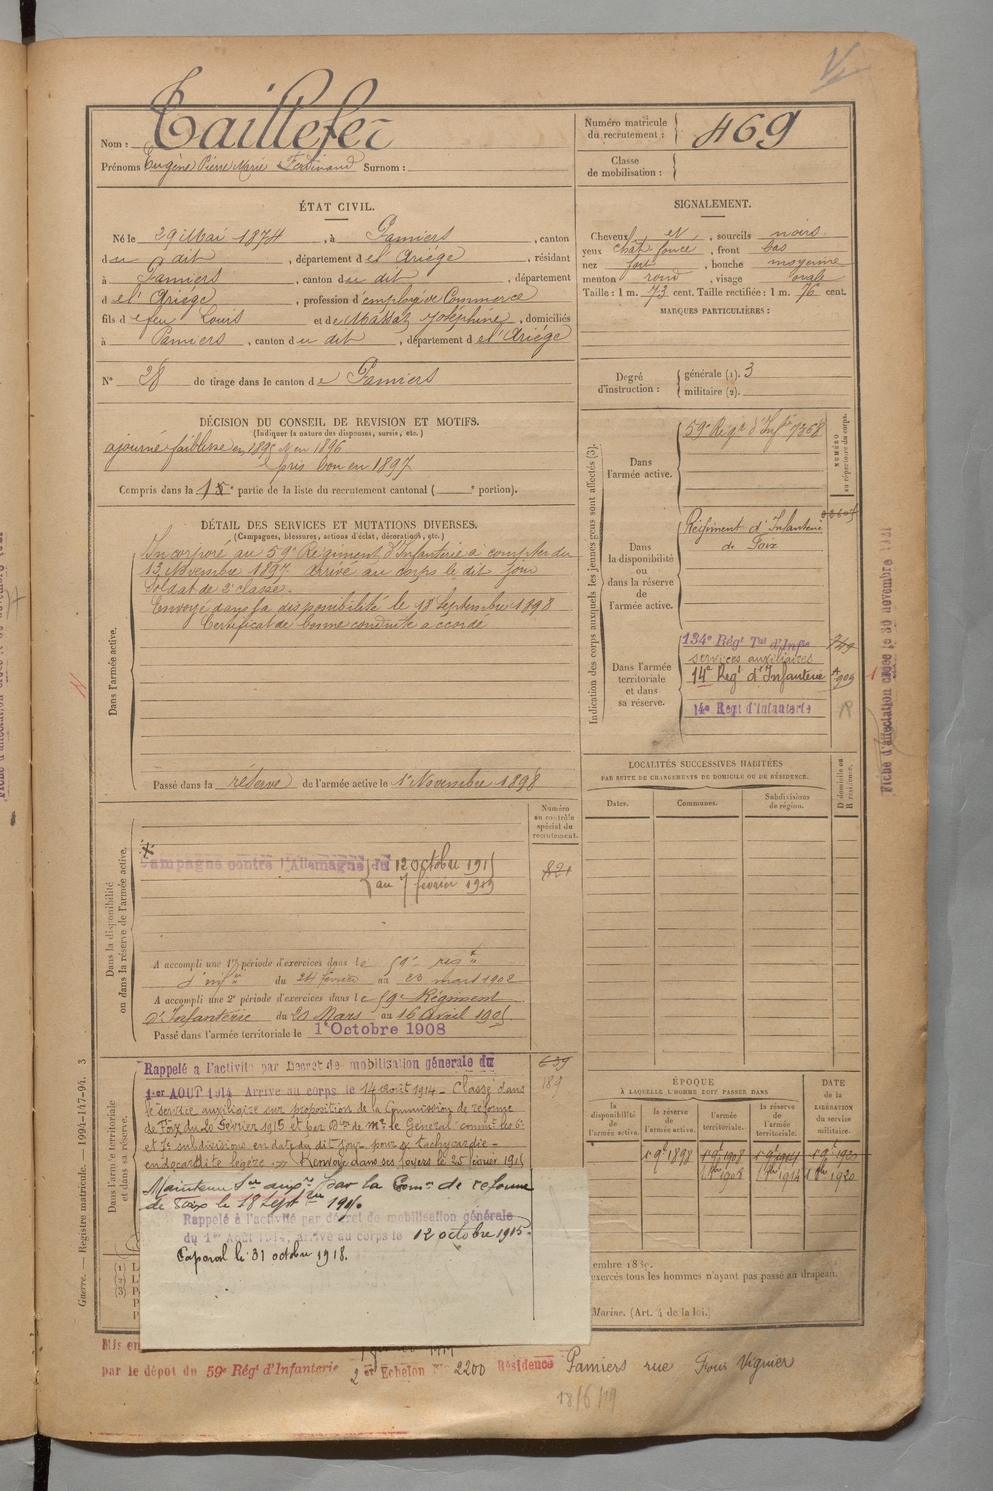 Nom : Taillefer
Prénoms Eugène Pierre Marie Ferdinand Surnom :
Numéro matricule du recrutement : 469
Classe de mobilisation :
ÉTAT CIVIL.
Né le 29 Mai 1874, à Pamiers, canton
du dit, département de l'Ariége, résidant
à Pamiers, canton du dit, département
de l'Ariège, profession d'employé de Commerce
fils de feu Louis et de Massat Joséphine, domiciliés
à Pamiers, canton du dit, département de l'Ariége
N° 28 de tirage dans le canton de Pamiers
SIGNALEMENT.
Cheveux et, sourcils noirs
yeux chât foncé, front bas
nez fort, bouche moyenne
menton rond, visage ovale
Taille : 1 m. 73 cent. Taille rectifiée : 1 m. 76 cent.
MARQUES PARTICULIÈRES :
Degré d'instruction : générale (1). 3
militaire (2).
DÉCISION DU CONSEIL DE REVISION ET MOTIFS.
(Indiquer la nature des dispenses, sursis, etc.)
ajourné faiblesse en 1895 et en 1896
pris bon en 1897
Compris dans la 1e partie de la liste du recrutement cantonal ( e portion).
DÉTAIL DES SERVICES ET MUTATIONS DIVERSES.
(Campagnes, blessures, actions d'éclat, décorations, etc.)
Dans l'armée active.
Incorporé au 59e Régiment d'Infanterie à compter du
13 Novembre 1897. Arrivé au corps le dit jour
Soldat de 2e classe.
Envoyé dans la disponibilité le 18 Septembre 1898
Certificat de bonne conduite accordé
Passé dans la réserve de l'armée active le 1er Novembre 1898
Indication des corps auxquels les jeunes gens sont affectés (3).
NUMÉRO au répertoire du corps.
Dans l'armée active.
59e Régt d'Infie 7358
Dans la disponibilité ou dans la réserve de l'armée active.
Régiment d'Infanterie
de Foix
Dans l'armée territoriale et dans sa réserve.
134e Régt Tal d'Infie
services auxiliaires
14e Régt d'Infanterie
14e Régt d'Infanterie
LOCALITÉS SUCCESSIVES HABITÉES
PAR SUITE DE CHANGEMENTS DE DOMICILE OU DE RÉSIDENCE.
Dates.
Communes.
Subdivisions de région.
D domicile ou R résidence.
Numéro au contrôle spécial du recrutement.
Dans la disponibilité ou dans la réserve de l'armée active.
Campagne contre l'Allemagne du 12 octobre 1915
au 7 février 1919
821
A accompli une 1re période d'exercices dans le 59e regt
d'infie du 24 février au 23 mars 1902
A accompli une 2e période d'exercices dans le 59e Régiment
d'Infanterie du 20 Mars au 16 Avril 1905
Passé dans l'armée territoriale le 1er Octobre 1908
Dans l'armée territoriale et dans sa réserve.
Rappelé à l'activité par Decret de mobilisation générale du
1er AOUT 1914 Arrivé au corps le 14 août 1914 - Classé dans
le service auxiliaire sur proposition de la Commission de réforme
de Foix du 20 février 1915 et par Don de Mr le Général commt les 6e
et 7e subdivisions en date du dit jour pour tachycardie -
endocardite légère Renvoyé dans ses foyers le 25 février 1915
189
Maintenu Sce auxre par la Comon de réforme
de Foix le 18 Septbre 1915.
Rappelé à l'activité par décret de mobilisation générale
du 1er Août 1914, arrivé au corps le 12 octobre 1915.
Caporal le 31 octobre 1918.
ÉPOQUE
À LAQUELLE L'HOMME DOIT PASSER DANS
la disponibilité de l'armée active.
la réserve de l'armée active.
l'armée territoriale.
la réserve de l'armée territoriale.
DATE de la LIBÉRATION du service militaire.
1er 9bre 1898
1er 9bre 1908
1er 9bre 1914
1er 9bre 1920
1er 8bre 1908
1er 8bre 1914
1er 8bre 1920
embre 18
exercés tous les hommes n'ayant pas passé au drapeau.
Marine. (Art. 4 de la loi.)
Guerre. — Registre matricule. — 1994-147-94. 3
Mis en
par le dépot du 59e Régt d'Infanterie 2e Echelon No 2200 Résidence Pamiers rue Four Vignier
18/6/19
Fiche d'affectation créée le 30 novembre 1921